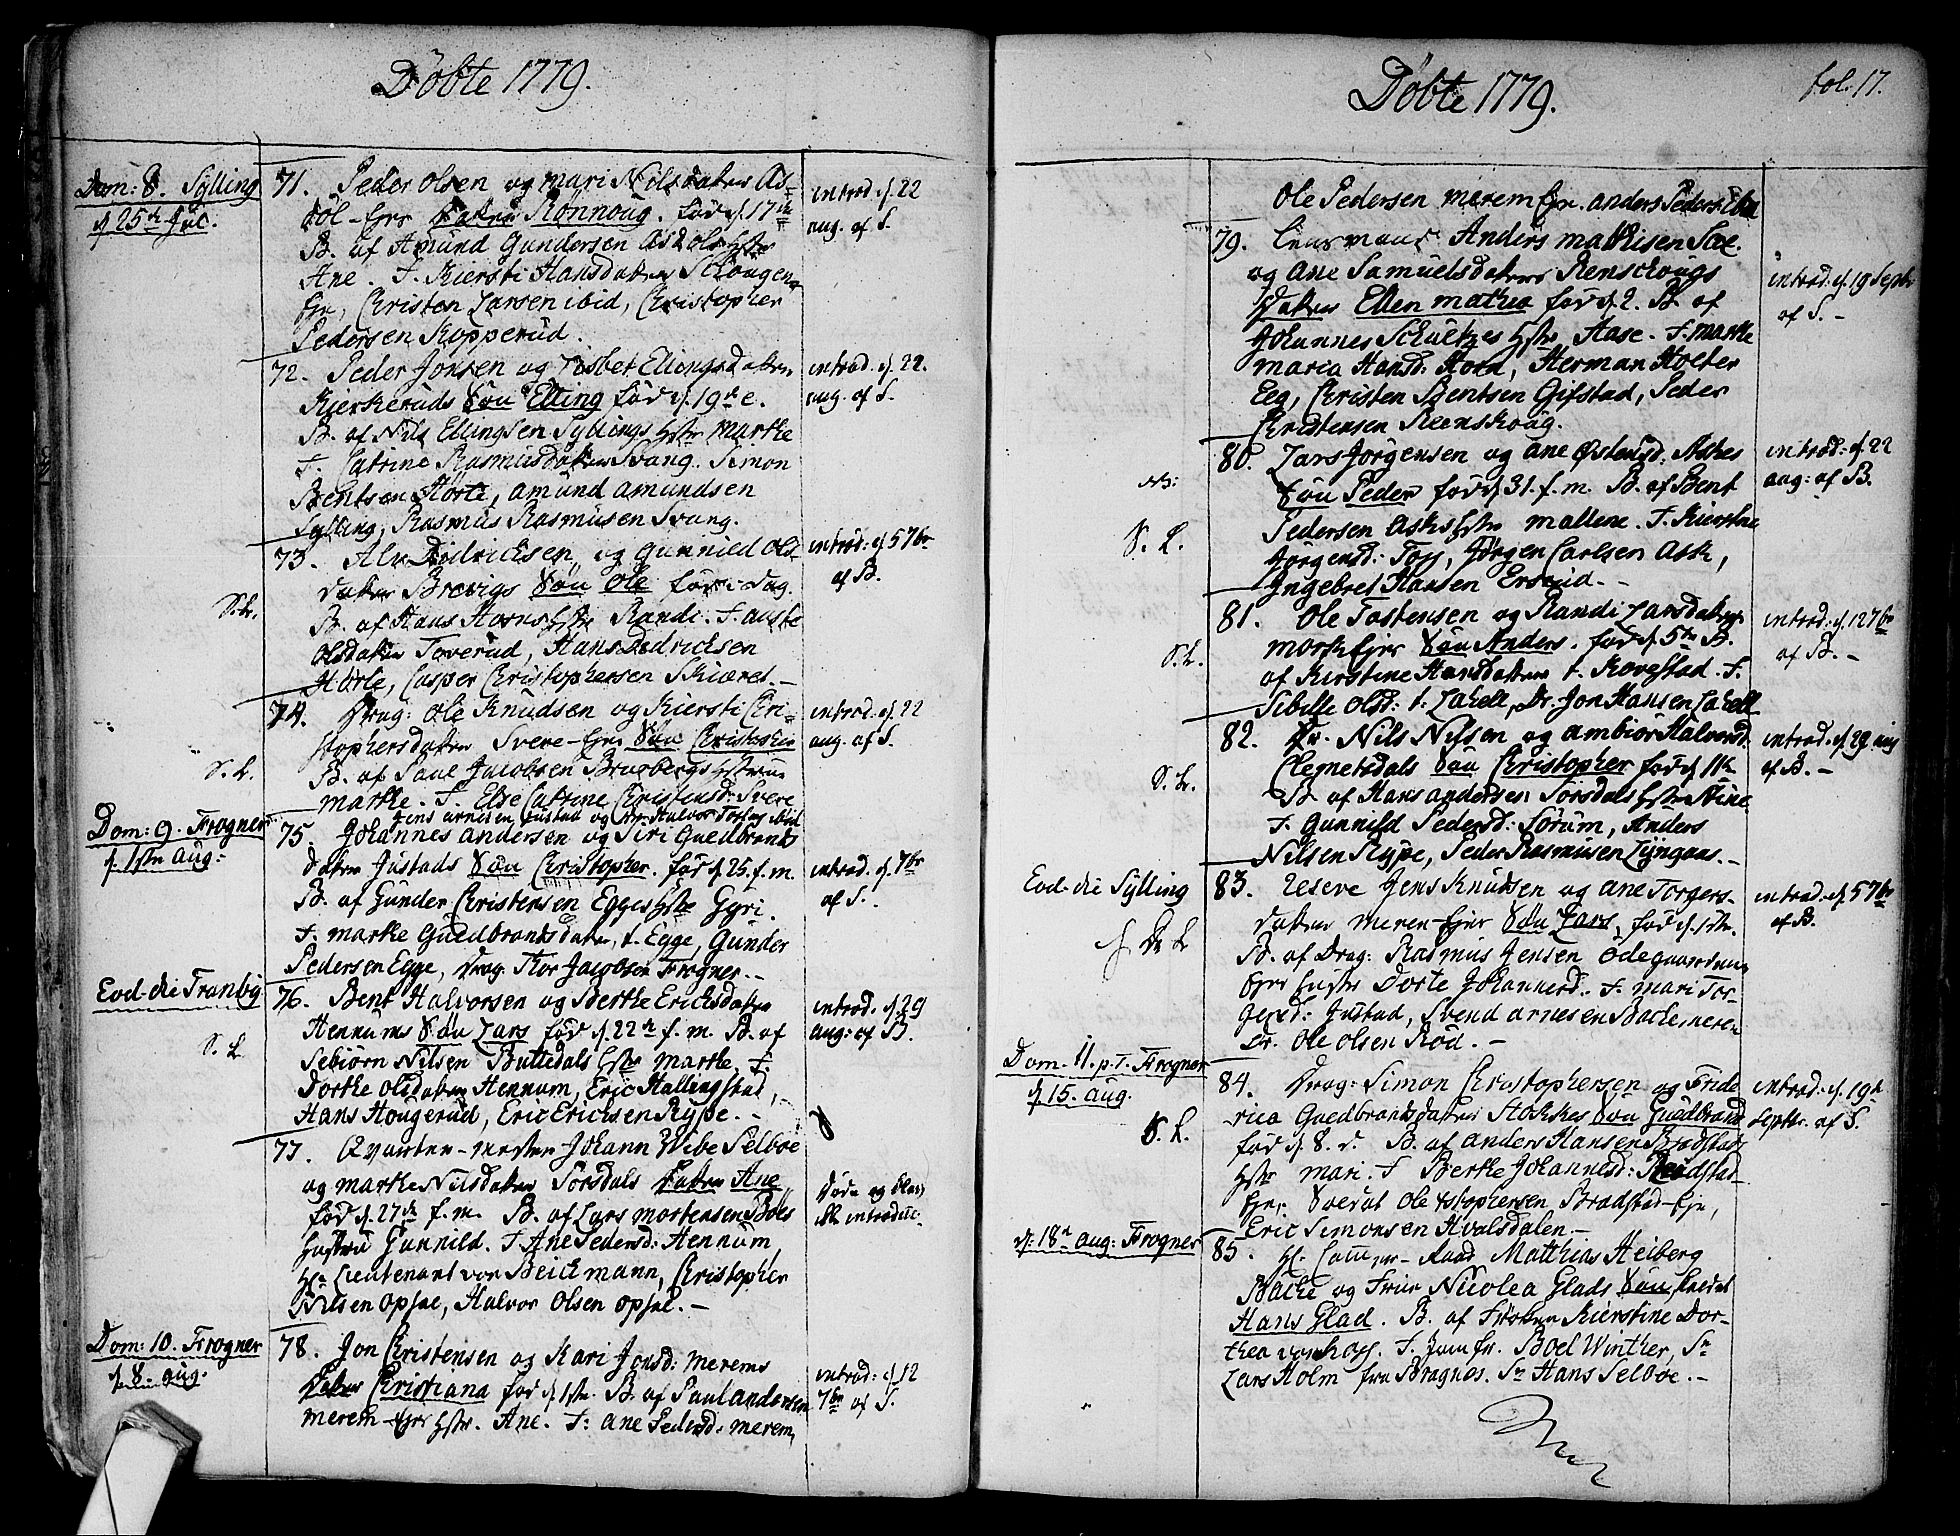 Döbte 1779.
Dom: 8. Sylling
d. 25de Jul.
71. Peder Olsen og Mari Nilsdatter As-
döl-Ejer Datter Rönnoug. föd d. 17de
B. af Amund Gundersen Asdöls Hstr
Ane. F. Kiersti Hansdatter Schougen-
Eje, Christen Larsen ibid, Christopher
Pedersen Kopperud.
introd. d. 22
aug. af S.
72. Peder Jonsen og Lisbet Ellingsdatter
Kierkeruds Sön Elling föd d. 19de.
B. af Nils Ellingsen Syllings Hstr Marthe
F. Catrine Rasmusdatter Svang. Simon
Bentsen Hörte, Amund Amundsen
Sylling, Rasmus Rasmusen Svang.
introd. d. 22.
aug. af S.
73. Alv Didricksen og Gunnild Ols-
datter Brevigs Sön Ole föd i dag.
B. af Hans Horns Hstr Randi. F. Aaste
Olsdatter Toverud, Hans Dedricksen
Hörte, Casper Christophersen Skiæret.-
introd: d. 5 7br
af B.
S. L.
74. Drag: Ole Knudsen og Kiersti Chri-
stophersdatter Svere-Ejer Sön Christopher
B. af Paul Jacobsen Bragbergs Hstrue
Marthe. F. Else Catrine Christensd: Svere
Jens Arnesen Justad og Halvor Tostes ibid
introd. d. 22
aug. af S.
S. L.
Dom: 9. Frogner
d. 1ste Aug:
75. Johannes Andersen og Siri Guldbrands
datter Justads Sön Christopher. föd d. 25. f. m.
B. af Gunder Christensen Egges Hstr Gyri.
F. Marthe Guldbrandsdatter, t. Egge, Gunder
Pedersen Egge, Drag: Thor Jacobsen Frogner.-
introd. d. 7br
af S.
Eod. die Tranby
76. Bent Halvorsen og Berthe Ericksdatter
Hennums Sön Lars föd d. 22de f. m. B. af
Sebiörn Nilsen Buttedals Hstr Marthe, F.
Dorthe Olsdatter Hennum, Eric Hallingstad,
Hans Hougerud, Eric Ericksen Rype.-
introd. d. 29
aug: af B.
S. L
77. Qvarteer-Mester Johann Wibe Selboe
og Marthe Nilsdatter Sörsdals Datter Ane,
föd d. 27de f. m. B. af Lars Mortensen Böes
Hustru Gunnild. F. Ane Pedersd: Hennum,
Hr. Lieutenant von Beickmann, Christopher
Nilsen Opsal, Halvor Olsen Opsal.-
Döde og blev
ikke introducc.
Dom: 10. Frogner
d. 8. aug.
78. Jon Christensen og Kari Jonsd: Merems
Datter Christiana föd d. 1ste. B. af Paul Andersen
Merem-Ejer Hstr. Ane. F. Ane Pedersd: Merem,
introd: d. 12
7br af S.
Döbte 1779.
fol. 17.
Ole Pedersen Merem Eje. Anders Peders
79. Lensmand Anders Mathisen Sæ.
og Ane Samuelsdatters Renschougs
Datter Ellen Mathea föd d. 2. B. af
Johannes Schultzes Hstr Aase. F. Marthe
Maria Hansd: Horn, Herman Holter
Eeg, Christen Bentsen Gifstad, Peder
Christensen Reenskoug.
introd. d. 19 Septr
af S. -
80. Lars Jörgensen og Ane Östensd: Askes
Sön Peder föd d. 31. f. m. B. af Bent
Pedersen Asks Hstr Mallene. F. Kierstine
Jörgensd: Tos, Jörgen Carlsen Ask,
Ingebret Hansen Ersrud.-
introd: d. 22
aug: af B.
NB:
S. L.
81. Ole Tostensen og Randi Larsdatter
Mork Ejer Sön Anders. föd d. 5te B.
af Kirstine Hansdatter t. Kovestad. F.
Sibille Olsd: t. Lahell, Dr. Jon Hansen Lahell
introd: d. 12 7br
af B. -
S. L.
82. Dr. Nils Nilsen og Ambiör Halvorsd
Clemetsdals Sön Christopher föd d. 11te
B. af Hans Andersen Sörsdals Hstr Stine
F. Gunnild Pedersd: Sörum, Anders
Nilsen Rype, Peder Rasmusen Lyngaas.-
introd: d. 29 aug
af B. -
S. L.
Eod. die Sylling
83. Reserve Jens Knudsen og Ane Torgers-
datter Meren-Ejer Sön Lars, föd d. 1ste.
B. af Drag: Rasmus Jensen Ödegaarden
Ejer Hustr Dorte Johannesd. F. Mari Tor-
gersd: Justad, Svend Arnesen Bache Meren
Dr. Ole Olsen Röd.-
introd. d. 5 7br
af B.
Dom. 11. p. T. Frogner
d. 15. aug.
84. Drag: Simon Christophersen og Fride
rica Guldbrandsdatter Stokkes Sön Guldbrand
föd d. 8. d. B. af Anders Hansen Bradstad
Hstr Mari. F Berthe Johannesd: Bradstad-
Eje. Soerut Ole Xstophersen Bradstad-Eje,
Eric Simonsen Hvalsdalen.-
introd: d. 19de
Septr. af S.
S. L.
d. 18de aug: Frogner
85. Hr. Cammer-Raad Matthias Heiberg
Bache og Frue Nicolea Glads Sön kaldet
Hans Glad. B. af Fröken Kierstine Dor-
thea von Koss. F. Jomfr. Boel Winther, Sr
Lars Holm fra Bragnes. Sr Hans Selboe.-